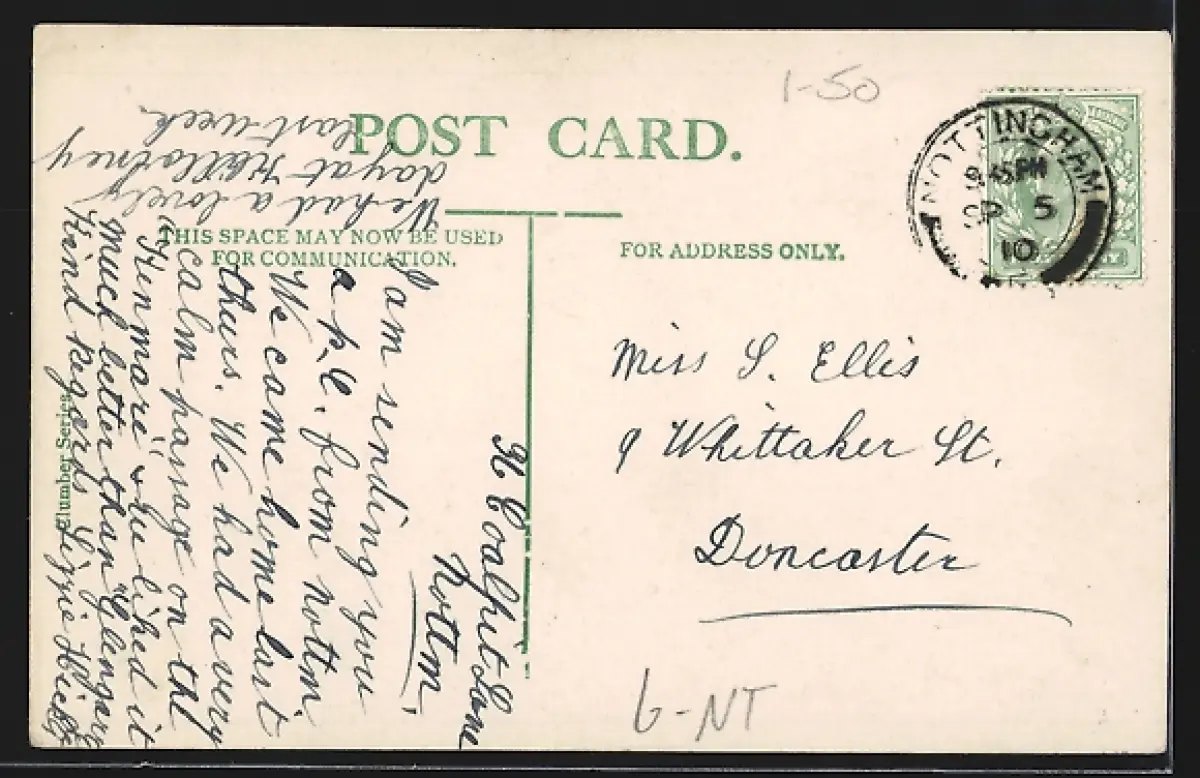 1-50
POST CARD.
THIS SPACE MAY NOW BE USED
FOR COMMUNICATION.
FOR ADDRESS ONLY.
NOTTINGHAM
45 PM
SP 5
10
Miss S. Ellis
9 Whittaker St.
Doncaster
6-NT
Coalpit Lane
Nottm.
I am sending you
a p.c. from nottm
We came home last
thurs. We had a very
calm passage on the
"Kenmare" & we liked it
much better than "Glengary"
Kind regards Lizzie
We had a lovely
day at Killarney
last week.
Series